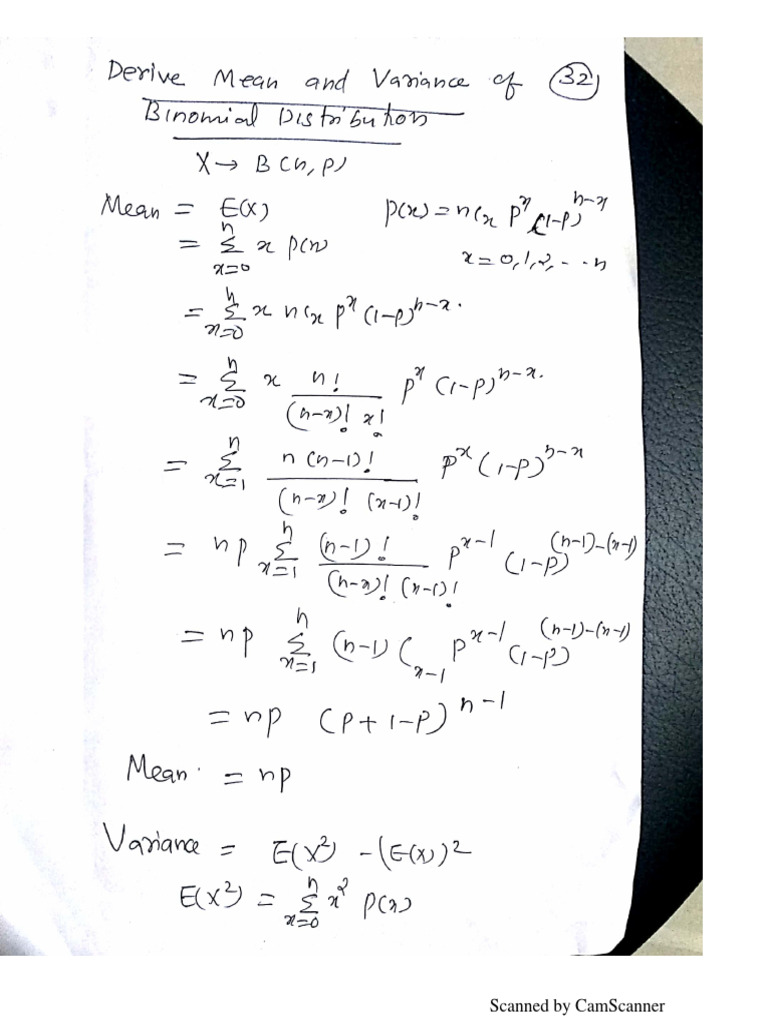 Derive Mean and Variance of (32)
Binomial Distribution
X → B(n, p)
Mean = E(X)   p(x) = nCx p^x (1-p)^n-x
= Σ_{x=0}^{n} x p(x)   x = 0, 1, 2, - - n
= Σ_{x=0}^{n} x nCx p^x (1-p)^n-x.
= Σ_{x=0}^{n} x n! / (n-x)! x! p^x (1-p)^n-x.
= Σ_{x=1}^{n} n (n-1)! / (n-x)! (x-1)! p^x (1-p)^n-x
= np Σ_{x=1}^{n} (n-1)! / (n-x)! (x-1)! p^x-1 (1-p)^(n-1)-(x-1)
= np Σ_{x=1}^{n} (n-1)C_{x-1} p^x-1 (1-p)^(n-1)-(x-1)
= np (p+1-p)^n-1
Mean = np
Variance = E(X²) - (E(X))²
E(X²) = Σ_{x=0}^{n} x² p(x)
Scanned by CamScanner